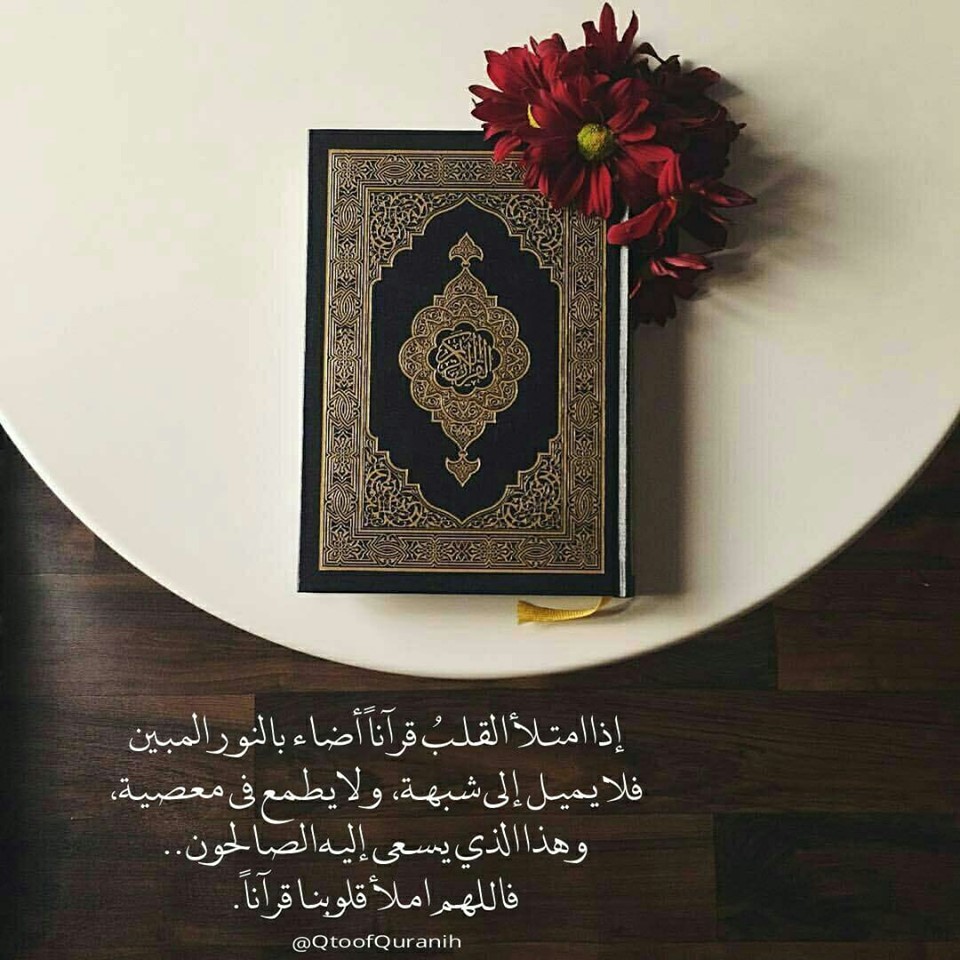 القرآن الكريم
إذا امتلأ القلبُ قرآناً أضاء بالنور المبين
فلا يميل إلى شبهة، ولا يطمع في معصية،
وهذا الذي يسعى إليه الصالحون..
فاللهم املأ قلوبنا قرآناً.
@QtoofQuranih